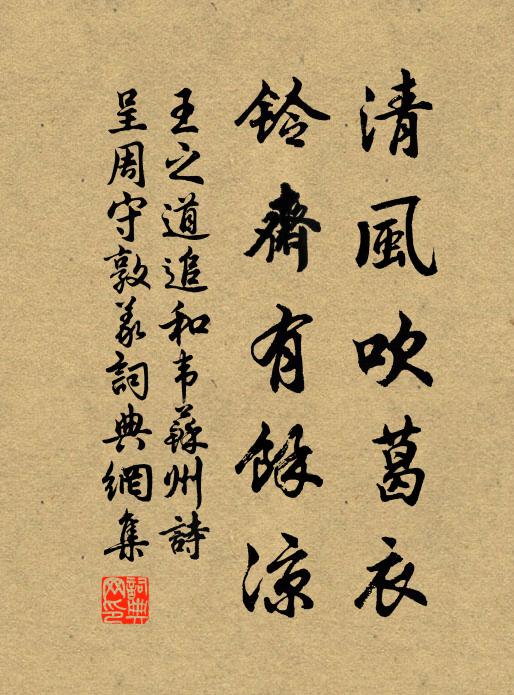 清風吹葛衣
鈴齋有餘涼
王之道追和韦蘇州詩
呈周守敦義詞典網集
詞典网印